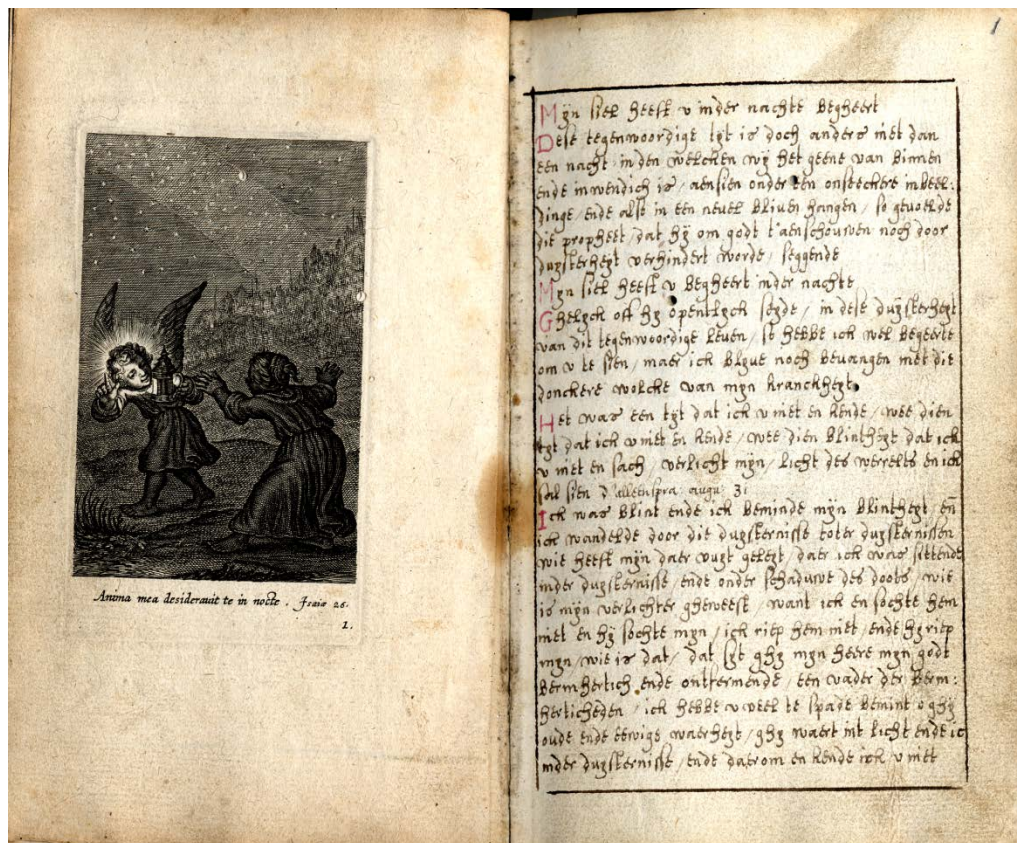 Anima mea desiderauit te in nocte. Isaiæ 26.
1.
1
Mÿn siel heeft v inder nachte begheert
Dese tegenwoordige tÿt is doch anders niet dan
een nacht in den welchen wÿ het geene van binnen
ende inwendich is / aensien onder een onseeckere inbeel:
dinge / ende alse in een neuel bliuen hangen / so geuoelde
die propheet / dat hÿ om godt t'aenschouwen noch door
duÿsterheÿt verhindert worde / seggende
Mÿn siel heeft v begheert inder nachte
Ghelÿck oft hÿ opentlÿck seÿde / in dese duÿsterheÿt
van dit tegenwoordige leuen / so hebbe ick wel begeerte
om v te sien / maer ick blÿue noch beuangen met die
donckere wolcke van mÿn kranckheÿt
Het was een tÿt dat ick v niet en kende / wee dien
tÿt dat ick v niet en kende / wee dien blintheÿt dat ick
v niet en sach / verlicht mÿn / licht des werrelts en ick
sal sien d'alleenspra: augu: 31
Ick was blint ende ick beminde mÿn blintheÿt / en̄
ick wandelde door die duÿsternisse toter duÿsternissen
wie heeft mÿn daer vuÿt geleÿt daer ick was sittende
inder duÿsternisse / ende onder schaduwe des doots / wie
is mÿn verlichter gheweest / want ick en sochte hem
niet en hÿ sochte mÿn / ick riep hem niet / ende hÿ riep
mÿn / wie is dat / dat sÿt ghÿ mÿn heere mÿn godt
bermhertich ende ontfermende / een vader der berm:
herticheden / ick hebbe v veel te spade bemint o ghÿ
oude ende eewige waerheÿt / ghÿ waert int licht ende ic
inder duÿsternisse / ende daerom en kende ick v niet